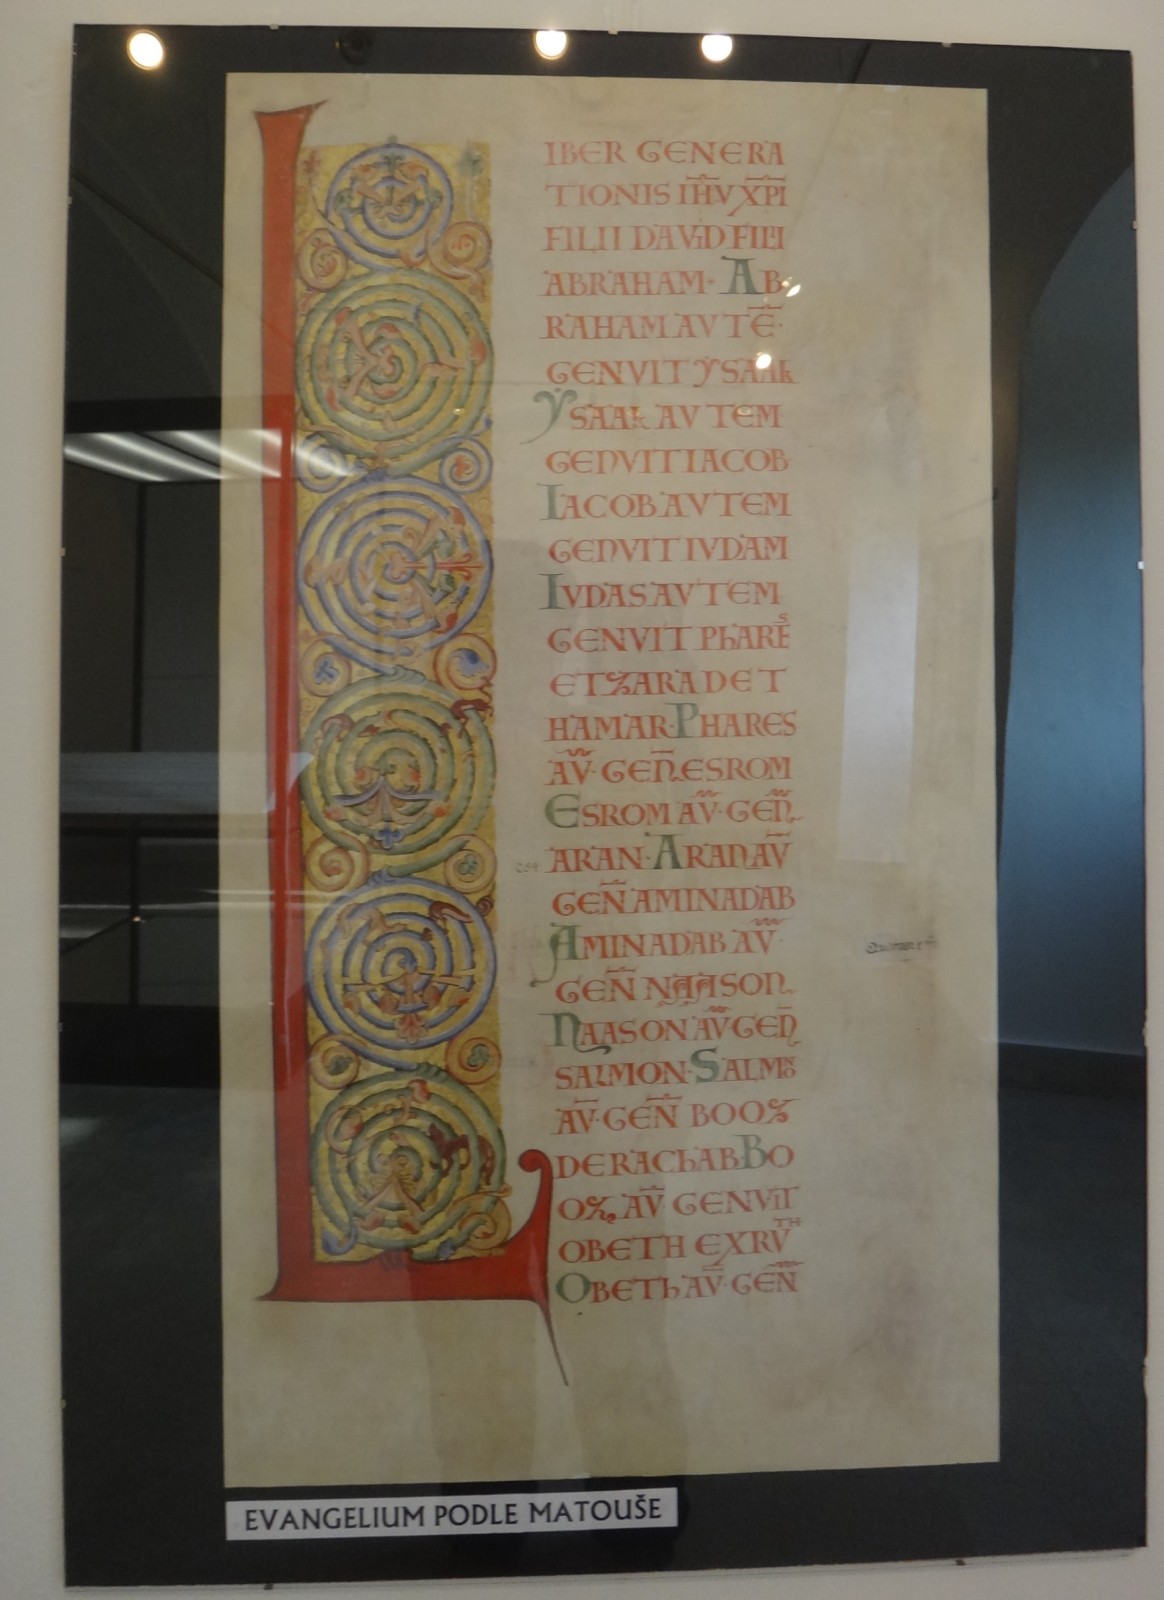 L
IBER GENERA
TIONIS IHU XPI
FILII DAVID FILII
ABRAHAM · AB
RAHAM AUTE ·
GENVIT YSAAK
YSAAK AUTEM
GENVIT IACOB
IACOB AUTEM
GENVIT IVDAM
IVDAS AUTEM
GENVIT PHARES
ET ZARA DE T
HAMAR · PHARES
AU · GEN ESROM
ESROM AU · GEN
ARAN · ARAN AU
GEN AMINADAB
AMINADAB AU ·
GEN NAASON
NAASON AU GEN
SALMON · SALMON
AU · GEN BOOZ
DE RACHAB · BO
OZ AU GENVIT
OBETH EX RVTH
OBETH AU · GEN
EVANGELIUM PODLE MATOUŠE